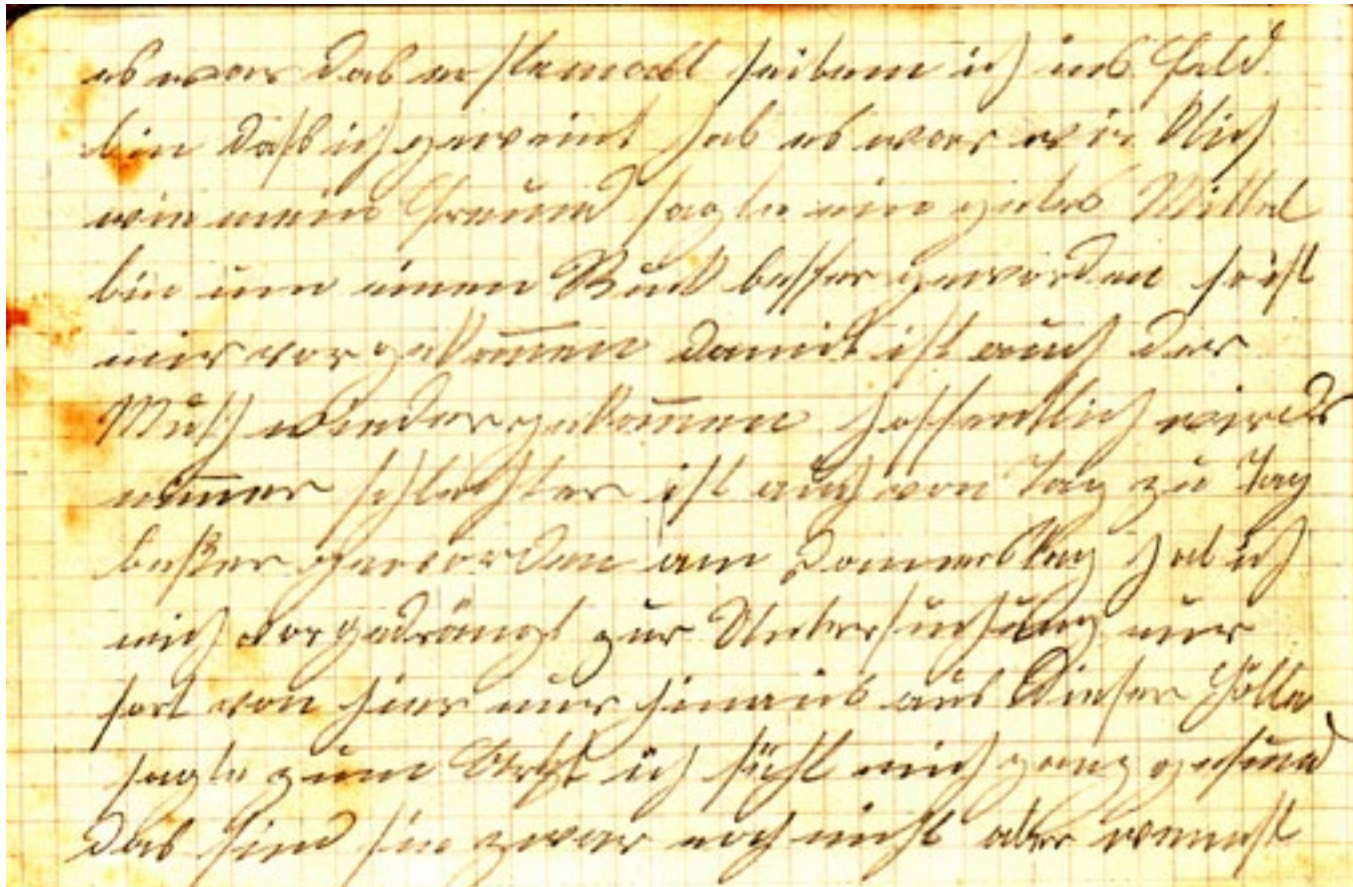 es war das erstemahl seidem ich ins Feld
bin daß ich geweint hab es war wirklich
wie mein Freund sagte ein gutes Mittel
bin um einen Ruck besser geworden so ist
mir vorgekom̄en damit ist auch der
Muth wieder gekom̄en hoffentlich wirds
nim̄er schlechter ist auch von Tag zu Tag
beßer geworden am Donnerstag hab ich
mich vorgedrängt zur Untersuchung nur
fort von hier nur hinaus aus dieser Hölle
sagte zum Arzt ich fühl mich ganz gesund
das sind sie zwar noch nicht aber